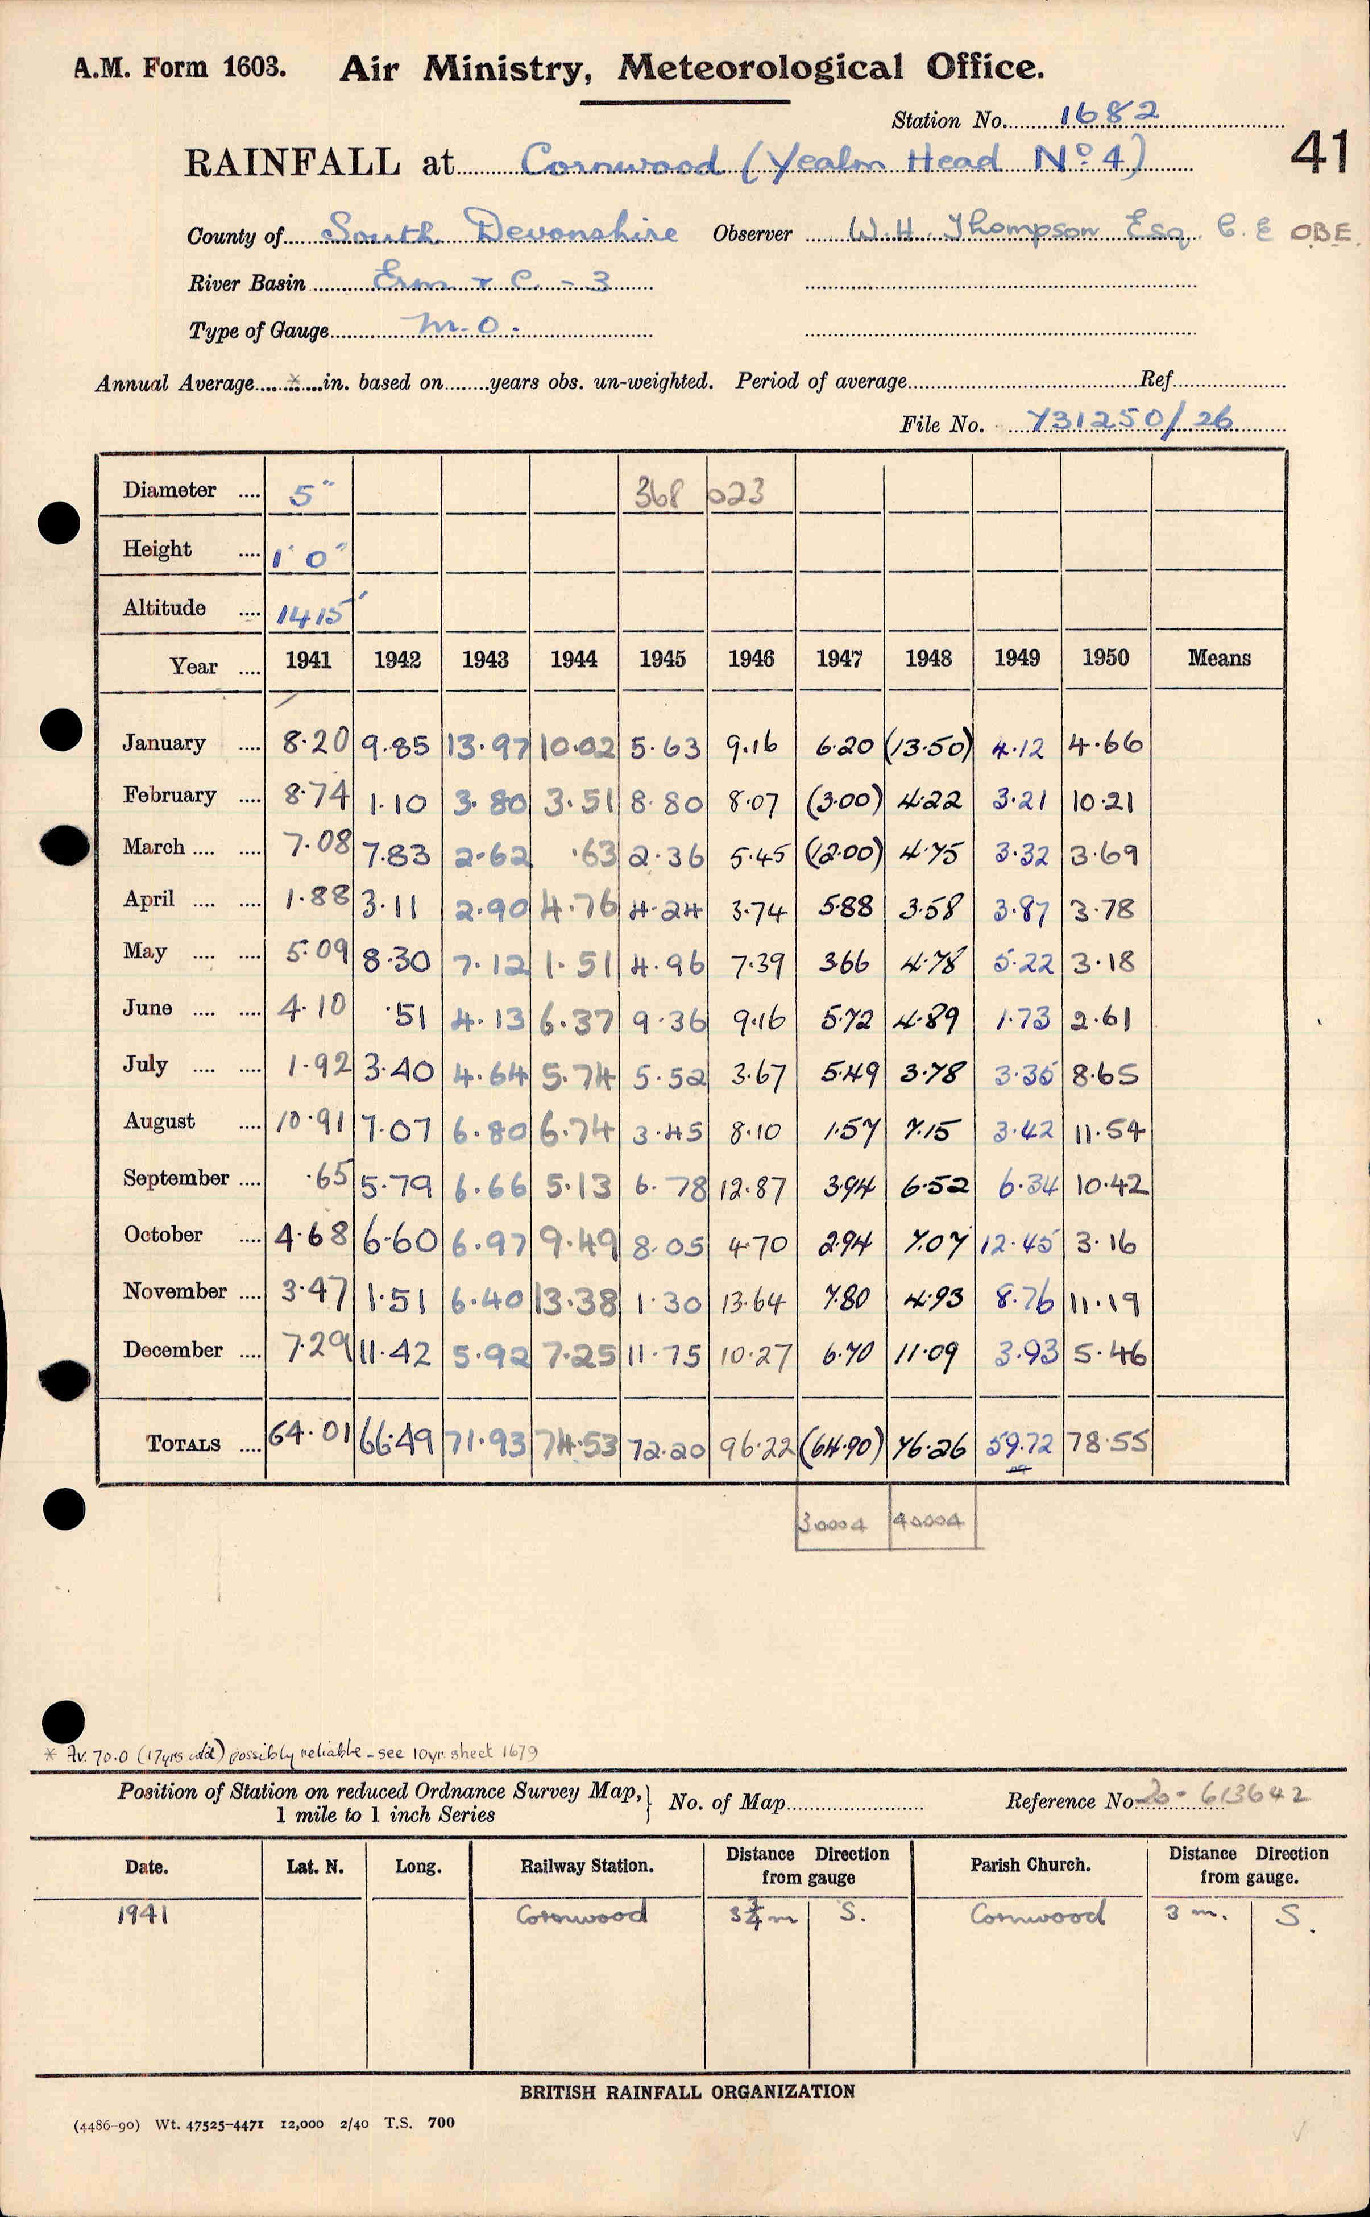 A.M. Form 1603. Air Ministry, Meteorological Office.
Station No. 1682
41
RAINFALL at Cornwood (Yealm Head No. 4)
County of South Devonshire Observer W. H. Thompson Esq C.E OBE.
River Basin Erm & C. - 3
Type of Gauge M.O.
Annual Average * in. based on years obs. un-weighted. Period of average Ref
File No. 731250/26
Diameter 5" 368 023
Height 1' 0"
Altitude 1415'
Year 1941 1942 1943 1944 1945 1946 1947 1948 1949 1950 Means
January 8.20 9.85 13.97 10.02 5.63 9.16 6.20 (13.50) 4.12 4.66
February 8.74 1.10 3.80 3.51 8.80 8.07 (3.00) 4.22 3.21 10.21
March 7.08 7.83 2.62 .63 2.36 5.45 (12.00) 4.75 3.32 3.69
April 1.88 3.11 2.90 4.76 4.24 3.74 5.88 3.58 3.87 3.78
May 5.09 8.30 7.12 1.51 4.96 7.39 3.66 4.78 5.22 3.18
June 4.10 .51 4.13 6.37 9.36 9.16 5.72 4.89 1.73 2.61
July 1.92 3.40 4.64 5.74 5.52 3.67 5.49 3.78 3.35 8.65
August 10.91 7.07 6.80 6.74 3.45 8.10 1.57 7.15 3.42 11.54
September .65 5.79 6.66 5.13 6.78 12.87 3.94 6.52 6.34 10.42
October 4.68 6.60 6.97 9.49 8.05 4.70 2.94 7.07 12.45 3.16
November 3.47 1.51 6.40 13.38 1.30 13.64 7.80 4.93 8.76 11.19
December 7.29 11.42 5.92 7.25 11.75 10.27 6.70 11.09 3.93 5.46
TOTALS 64.01 66.49 71.93 74.53 72.20 96.22 (64.90) 76.26 59.72 78.55
30004 40004
* Av. 70.0 (17yrs wtd) possibly reliable - see 10yr. sheet 1679
Position of Station on reduced Ordnance Survey Map, 1 mile to 1 inch Series } No. of Map Reference No 20- 613642
Date. Lat. N. Long. Railway Station. Distance Direction from gauge Parish Church. Distance Direction from gauge.
1941 Cornwood 3¾ m S. Cornwood 3 m. S.
BRITISH RAINFALL ORGANIZATION
(4486-90) Wt. 47525-4471 12,000 2/40 T.S. 700